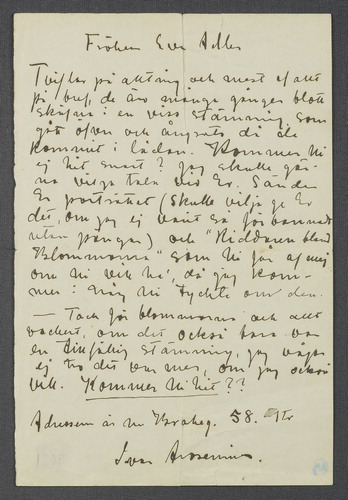 Fröken Eva Adler
Tviflar på allting och mest af allt
på bref, de äro många gånger blott
skrifna i en viss stämning, som
går öfver och ångrats då de
kommit i lådan. Kommer Ni
ej hit snart? Jag skulle gär-
na vilja tala vid Er. Sänder
Er porträttet (skulle vilja ge Er
det, om jag ej varit så förbannadt
utan pengar) och "Riddaren bland
Blommorna" som Ni får af mig
om Ni vill ha', då jag kom-
mer ihåg Ni tyckte om den.
— Tack för blommorna och allt
vackert, om det också bara var
en tillfällig stämning, jag vågar
ej tro det var mer, om jag också
vill. Kommer Ni hit??
Adressen är nu Braheg. 58. 1 tr
Ivar Arosenius.